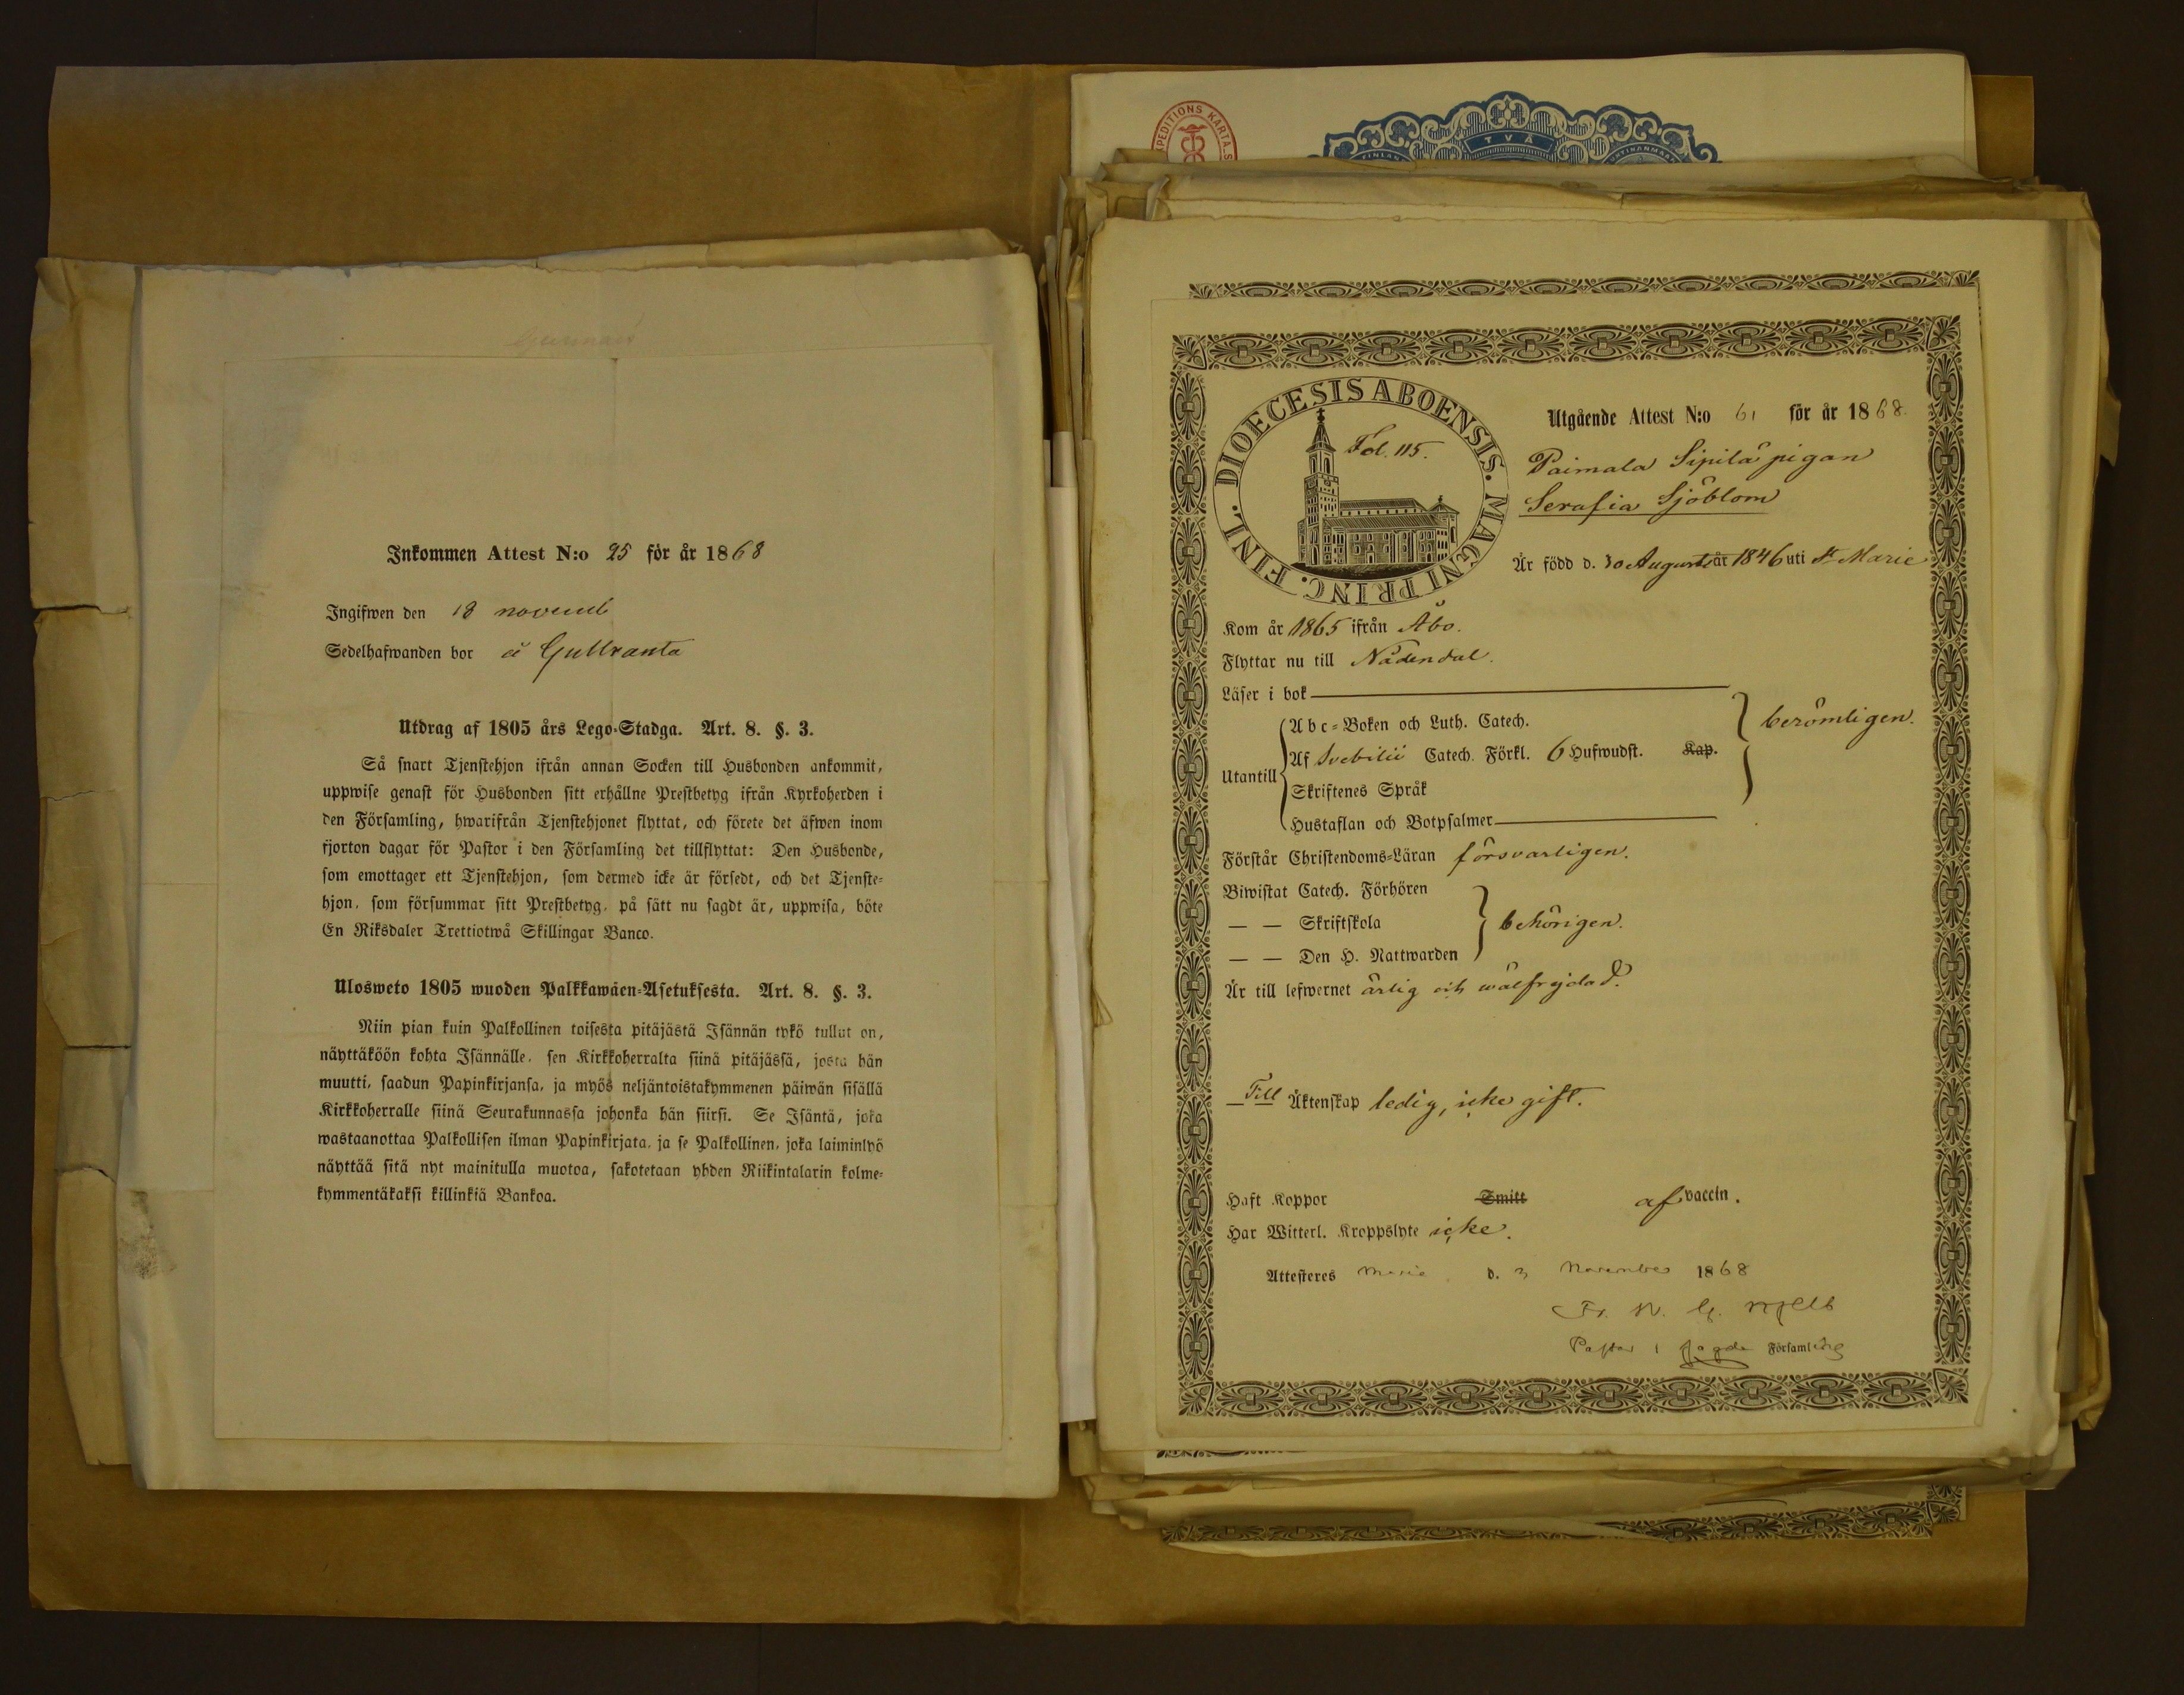 Inkommen Attest N:o 25 för år 1868
Ingifwen den 18 novemb
Sedelhafwanden bor å Gullranta
Utdrag af 1805 års Lego-Stadga. Art. 8. §. 3.
Så snart Tjenstehjon ifrån annan Socken till Husbonden ankommit,
uppwise genast för Husbonden sitt erhållne Prestbetyg ifrån Kyrkoherden i
den Församling, hwarifrån Tjenstehjonet flyttat, och förete det äfwen inom
fjorton dagar för Pastor i den Församling det tillflyttat: Den Husbonde,
som emottager ett Tjenstehjon, som dermed icke är försedt, och det Tjenste-
hjon, som försummar sitt Prestbetyg, på sätt nu sagdt är, uppwisa, böte
En Riksdaler Trettiotwå Skillingar Banco.
Ulosweto 1805 wuoden Palkkawäen-Asetuksesta. Art. 8. §. 3.
Niin pian kuin Palkollinen toisesta pitäjästä Isännän tykö tullut on,
näyttäköön kohta Isännälle, sen Kirkkoherralta siinä pitäjässä, josta hän
muutti, saadun Papinkirjansa, ja myös neljäntoistakymmenen päiwän sisällä
Kirkkoherralle siinä Seurakunnassa johonka hän siirsi. Se Isäntä, joka
wastaanottaa Palkollisen ilman Papinkirjata, ja se Palkollinen, joka laiminlyö
näyttää sitä nyt mainitulla muotoa, sakotetaan yhden Riikintalarin kolme-
kymmentäkaksi killinkiä Bankoa.
EXPEDITIONS KARTA.S
TVÅ
DIOECESIS ABOENSIS. MAGNI PRINC. FINL.
Fol. 115.
Utgående Attest N:o 61 för år 1868
Paimala Sipilä pigan
Serafia Sjöblom
Är född d. 30 Augusti år 1846 uti St Marie
Kom år 1865 ifrån Åbo.
Flyttar nu till Nådendal.
Läser i bok
Utantill
Abc-Boken och Luth. Catech.
Af Svebilii Catech. Förkl. 6 Hufwudst. Kap.
Skriftenes Språk
Hustaflan och Botpsalmer
berömligen.
Förstår Christendoms-Läran försvarligen.
Biwistat Catech. Förhören
— — Skriftskola
— — Den H. Nattwarden
behörigen.
Är till lefwernet ärlig och wälfrejdad.
Till Äktenskap ledig, icke gift.
Haft Koppor Smitt af vaccin.
Har Witterl. Kroppslyte icke.
Attesteras Marie d. 3 November 1868
Pastor i sagde Församling